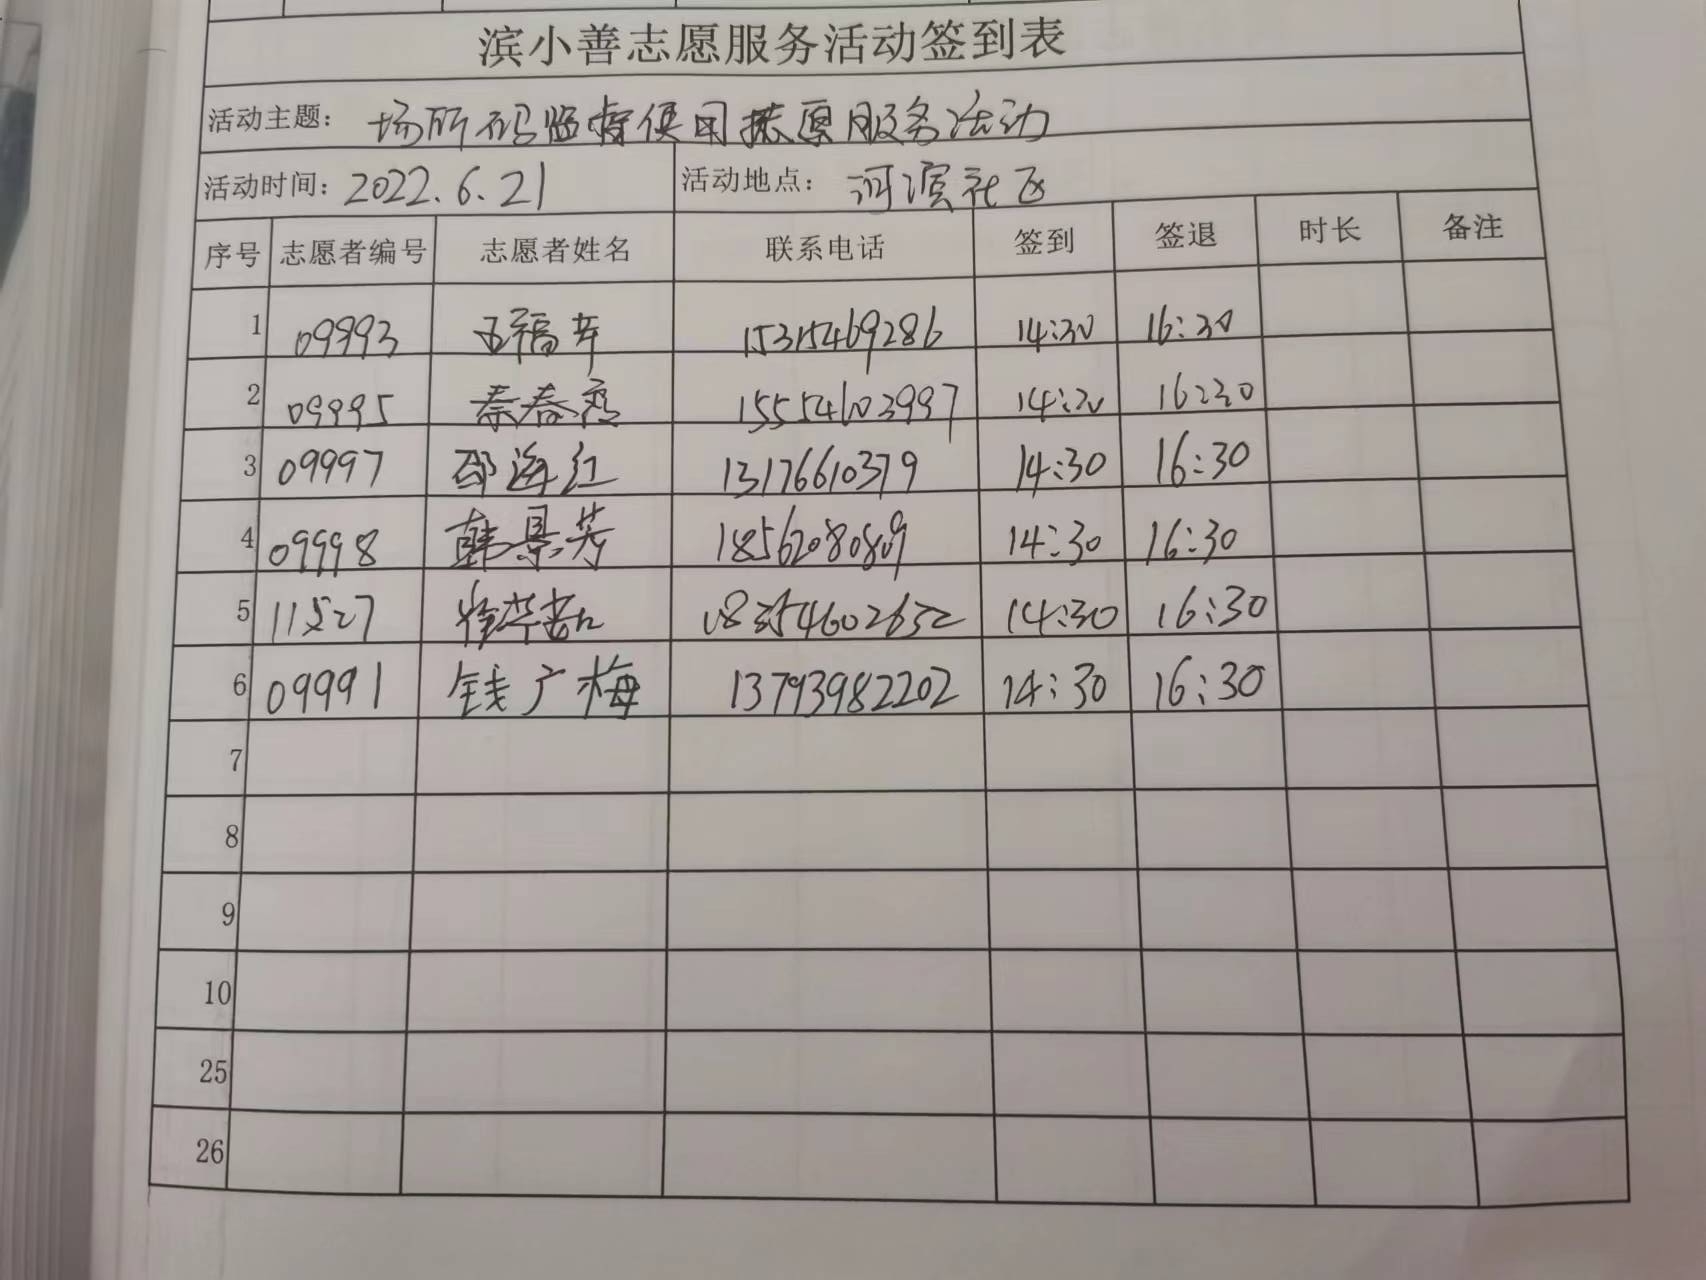 滨小善志愿服务活动签到表
活动主题: 场所码监督使用志愿服务活动
活动时间: 2022.6.21 活动地点: 河滨社区
序号 志愿者编号 志愿者姓名 联系电话 签到 签退 时长 备注
1 09993 15315469286 14:30 16:30
2 09995 秦春 15554603997 14:30 16:30
3 09997 邵海红 13176610379 14:30 16:30
4 09998 韩景芳 18562080809 14:30 16:30
5 11527 14:30 16:30
6 09991 钱广梅 13793982202 14:30 16:30
7
8
9
10
25
26